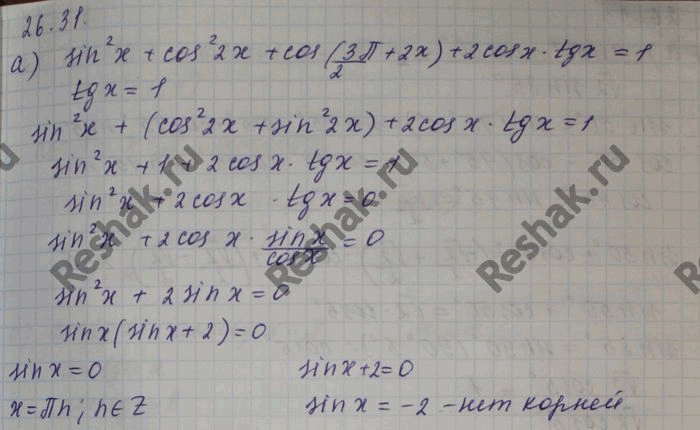 26.31.
а) sin²x + cos²2x + cos(3π/2 + 2x) + 2cosx · tgx = 1
tgx = 1
sin²x + (cos²2x + sin²2x) + 2cosx · tgx = 1
sin²x + 1 + 2cosx · tgx = 1
sin²x + 2cosx · tgx = 0
sin²x + 2cosx · sinx/cosx = 0
sin²x + 2sinx = 0
sinx(sinx + 2) = 0
sinx = 0 sinx + 2 = 0
x = πn; n ∈ Z sinx = -2 - нет корней
Reshak.ru
Reshak.ru
Reshak.ru